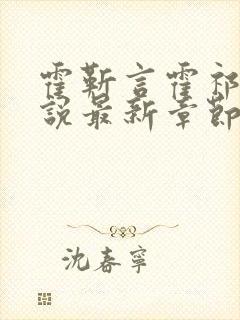 霍靳言霍祁
說最新章節
沈春寧